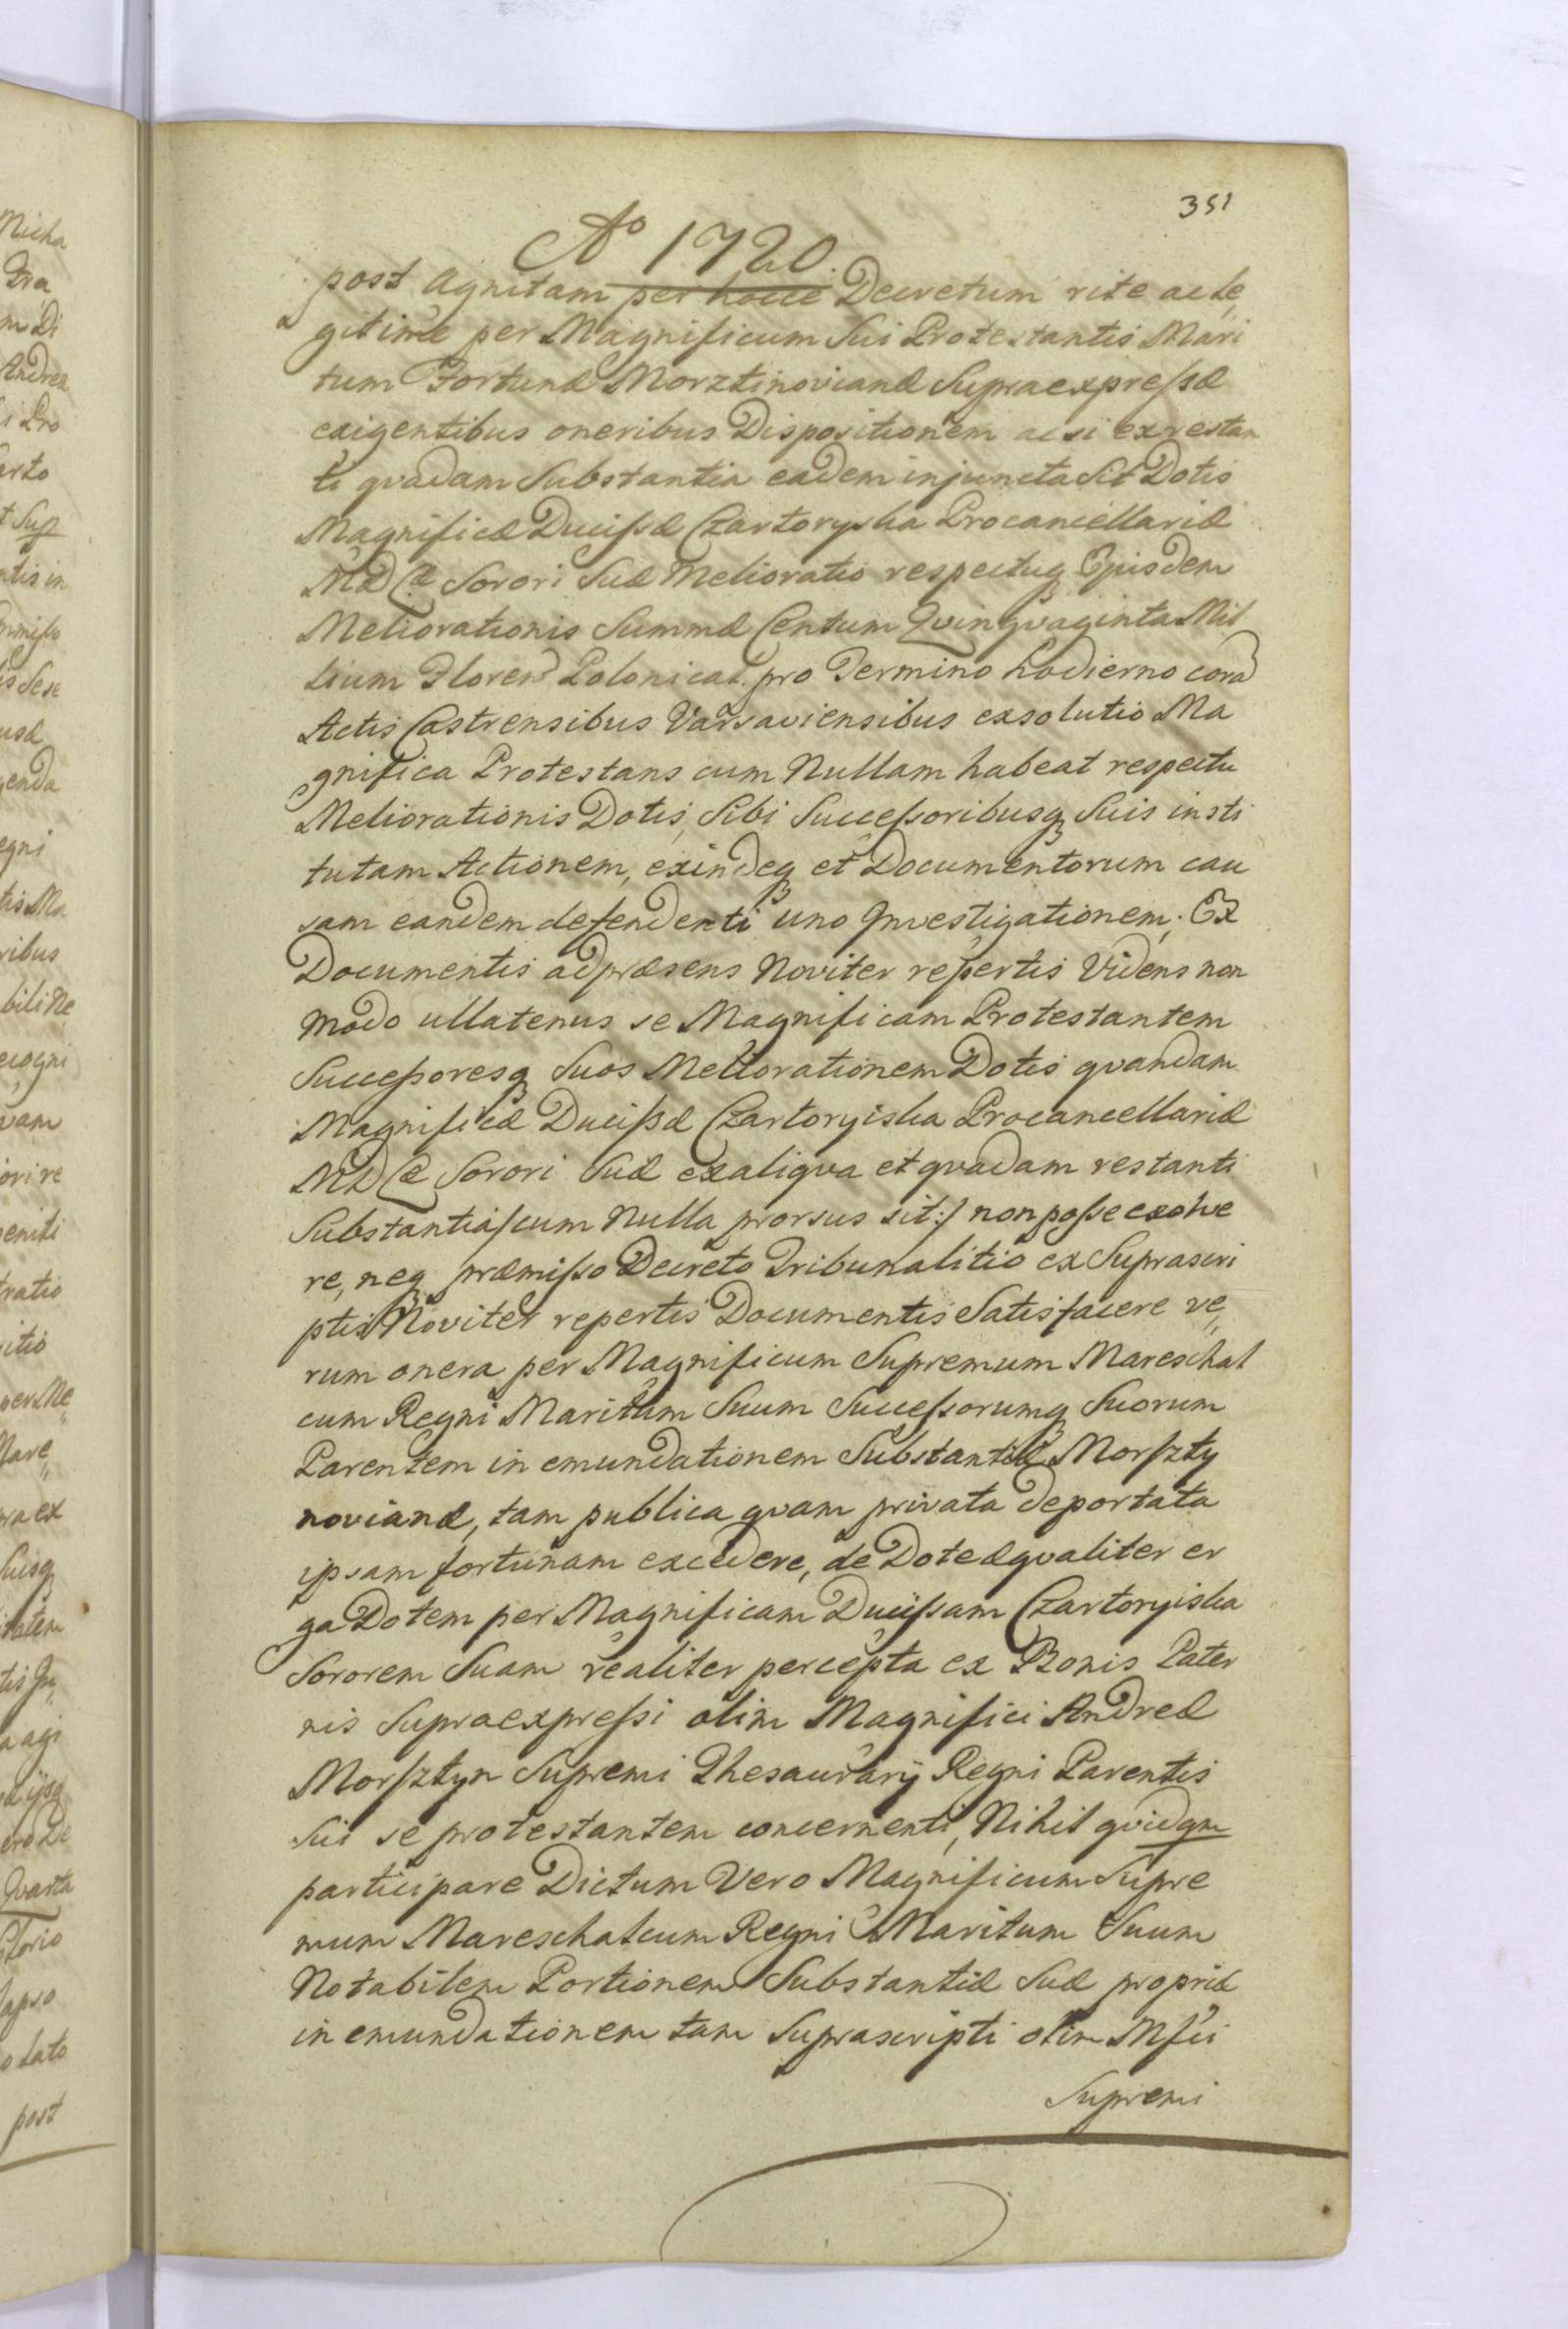 351
Aº 1720.
post agnitam per hocce Decretum rite ac le„
gitime per Magnificum Sui Protestantis Mari
tum Fortunæ Morztinovianæ Supraexpreſsæ
exigentibus oneribus Dispositionem ac si ex restan
ti qvadam Substantia eadem injuncta sit Dotis
Magnificæ Duciſsæ Czartoryska Procancellariæ
MDL Sorori Suæ Melioratio respectuq Ejusdem
Meliorationis Summæ Centum Qvinqvaginta Mil
lium Floren Polonical. pro Termino hodierno cora
Actis Castrensibus Varsaviensibus exsolutio Ma
gnifica Protestans cum Nullam habeat respectu
Meliorationis Dotis, Sibi Succeſsoribusq Suis insti
tutam Actionem, exindeq et Documentorum cau
sam eandem defendenti uno Investigationem; Ex
Documentis adpræsens Noviter repertis Videns non
modo ullatenus se Magnificam Protestantem
Succeſsoresq Suos Meliorationem Dotis qvandam
Magnificæ Duciſsæ Czartoryiska Procancellariæ
MDL Sorori Suæ ex aliqva et qvadam restanti
Substantia/cum Nulla prorsus sit:/ non poſse exolve
re, neq præmiſso Decreto Tribunalitio ex Suprascri
ptis Noviter repertis Documentis Satisfacere ve„
rum onera per Magnificum Supremum Mareschal
cum Regni Maritum Suum Succeſsorumq Suorum
Parentem in emundationem Substantiæ Morſzty
novianæ, tam publica qvam privata deportata
ipsam fortunam excedere, de Dote æqvaliter er
ga Dotem per Magnificam Duciſsam Czartoryiska
Sororem Suam realiter percepta ex Bonis Pater
nis Supraexpreſsi olim Magnifici Andreæ
Morſztyn Supremi Thesaurarij Regni Parentis
sui se protestantem concernenti, Nihil qvidqm
participare Dictum Vero Magnificum Supre
mum Mareschalcum Regni Maritum Suum
Notabilem Portionem Substantiæ Suæ propriæ
in emundationem tam Suprascripti olim Mſci
Supremi